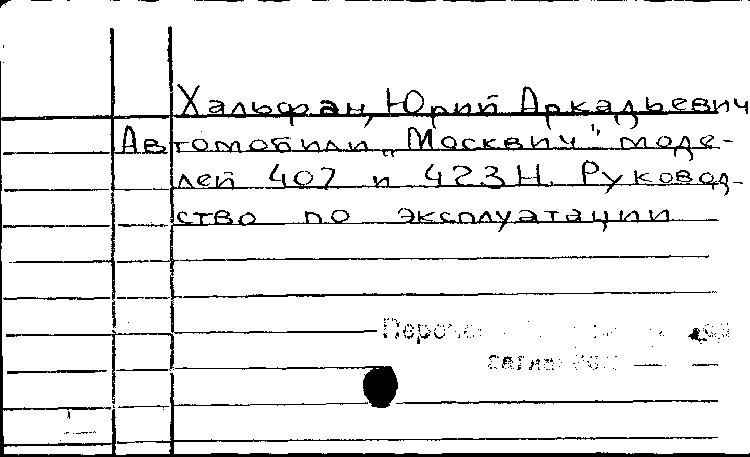 Хальфан, Юрий Аркадьевич
Автомобили „Москвич" моде-
лей 407 и 423Н. Руковод-
ство по эксплуатации